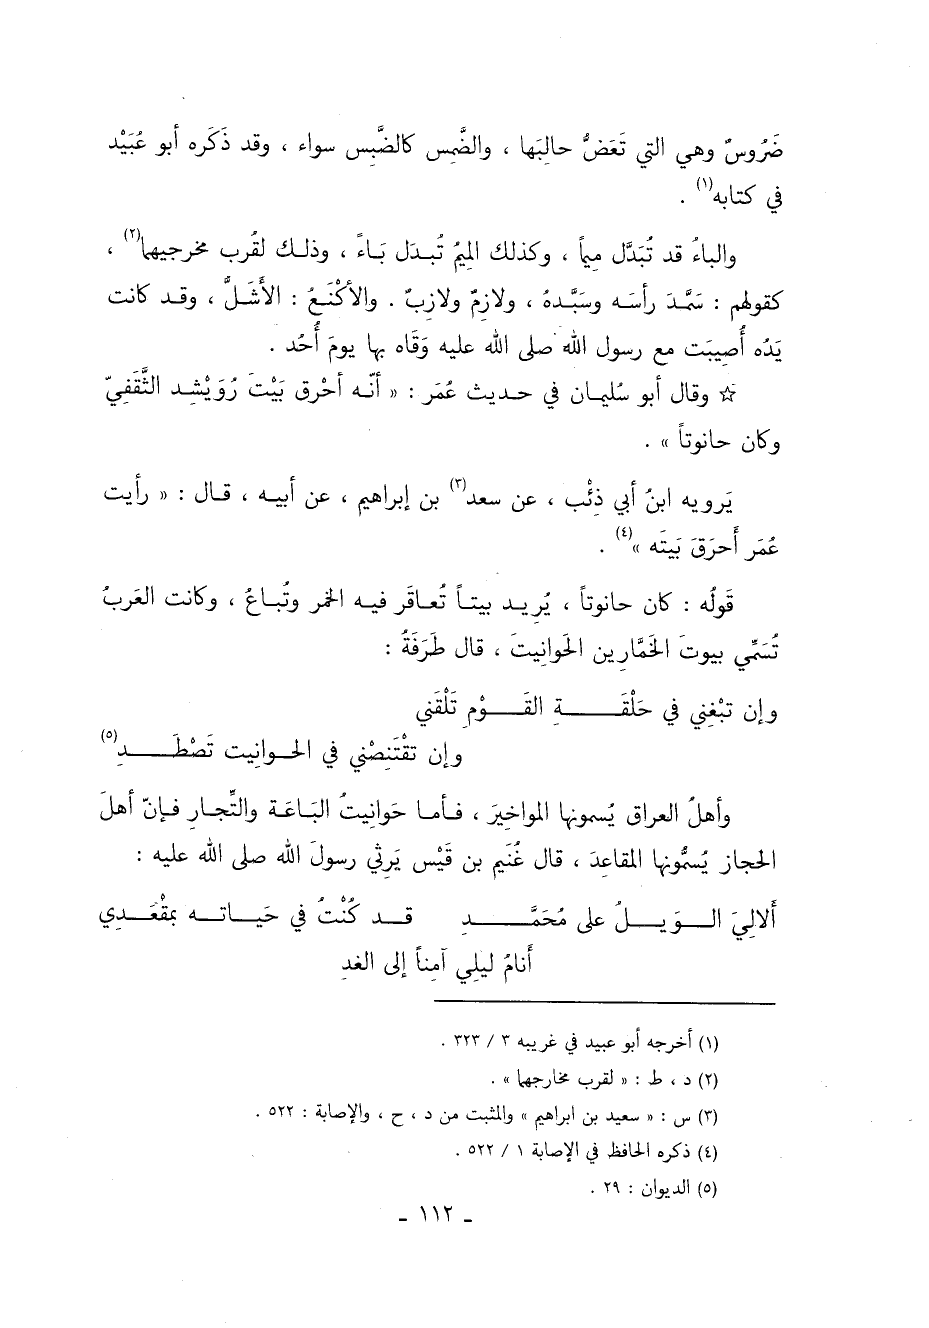 ضَرُوسٌ وهي التي تَعَضُّ حالِبَها ، والضَّمِس كالضَّبِس سواء ، وقد ذَكَره أبو عُبَيْد
في كتابه(١) .
والباءُ قد تُبَدَّل ميماً ، وكذلك الميمُ تُبدَل بَاءً ، وذلك لقُرب مخرجيها(٢) ،
كقولهم : سَمَّدَ رأسَه وسَبَّدهُ ، ولازِمٌ ولازِبٌ . والأكْنَعُ : الأَشَلُّ ، وقد كانت
يَدُه أُصِيبَت مع رسول الله صلى الله عليه وَقَاه بها يومَ أُحُد .
☆ وقال أبو سُليمان في حديث عُمَر : « أنّه أحْرق بَيْتَ رُوَيْشِد الثَّقَفِيّ
وكان حانوتاً » .
يَرويه ابنُ أبي ذِئْب ، عن سعد(٣) بن إبراهيم ، عن أبيه ، قال : « رأيت
عُمَر أَحرَقَ بَيتَه »(٤) .
قَولُه : كان حانوتاً ، يُريد بيتاً تُعاقَر فيه الخمر وتُباعُ ، وكانت العَربُ
تُسَمِّي بيوتَ الخَمَّارِين الحَوانِيتَ ، قال طَرَفَةُ :
وإن تبْغِني في حَلْقَةِ القَوْمِ تَلْقَني
وإن تقْتَنِصْني في الحوانِيت تَصْطَدِ(٥)
وأهلُ العراق يُسمونها المواخِيرَ ، فأما حَوانِيتُ البَاعَة والتِّجارِ فإنّ أهلَ
الحجاز يُسمُّونها المقاعِدَ ، قال غُنَيم بن قَيْس يَرثي رسولَ الله صلى الله عليه :
أَلالِيَ الوَيلُ على مُحَمَّدِ قد كُنْتُ في حَياته بمقْعَدي
أَنامُ ليلِي آمِناً إلى الغدِ
(١) أخرجه أبو عبيد في غريبه ٣ / ٣٢٣ .
(٢) د ، ط : « لقرب مخارجها » .
(٣) س : « سعيد بن ابراهيم » والمثبت من د ، ح ، والإصابة : ٥٢٢ .
(٤) ذكره الحافظ في الإصابة ١ / ٥٢٢ .
(٥) الديوان : ٢٩ .
- ١١٢ -